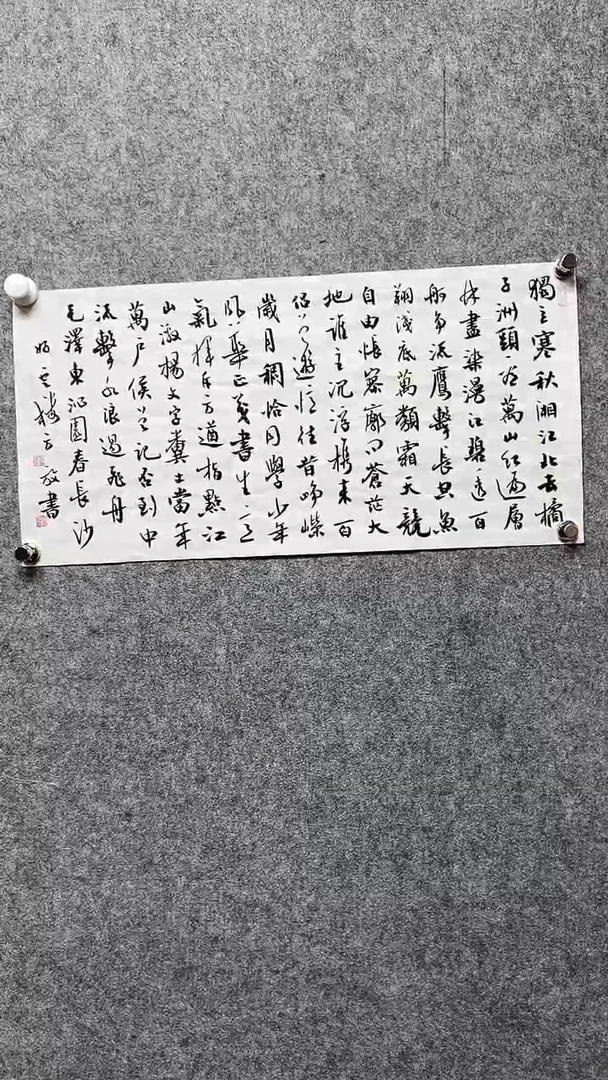 獨立寒秋湘江北去橘
子洲頭看萬山紅遍層
林盡染漫江碧透百
舸爭流鷹擊長空魚
翔淺底萬類霜天競
自由悵寥廓問蒼茫大
地誰主沉浮攜來百
侶曾遊憶往昔崢嶸
歲月稠恰同學少年
風華正茂書生意
氣揮斥方遒指點江
山激揚文字糞土當年
萬戶侯曾記否到中
流擊水浪遏飛舟
毛澤東沁園春長沙
書